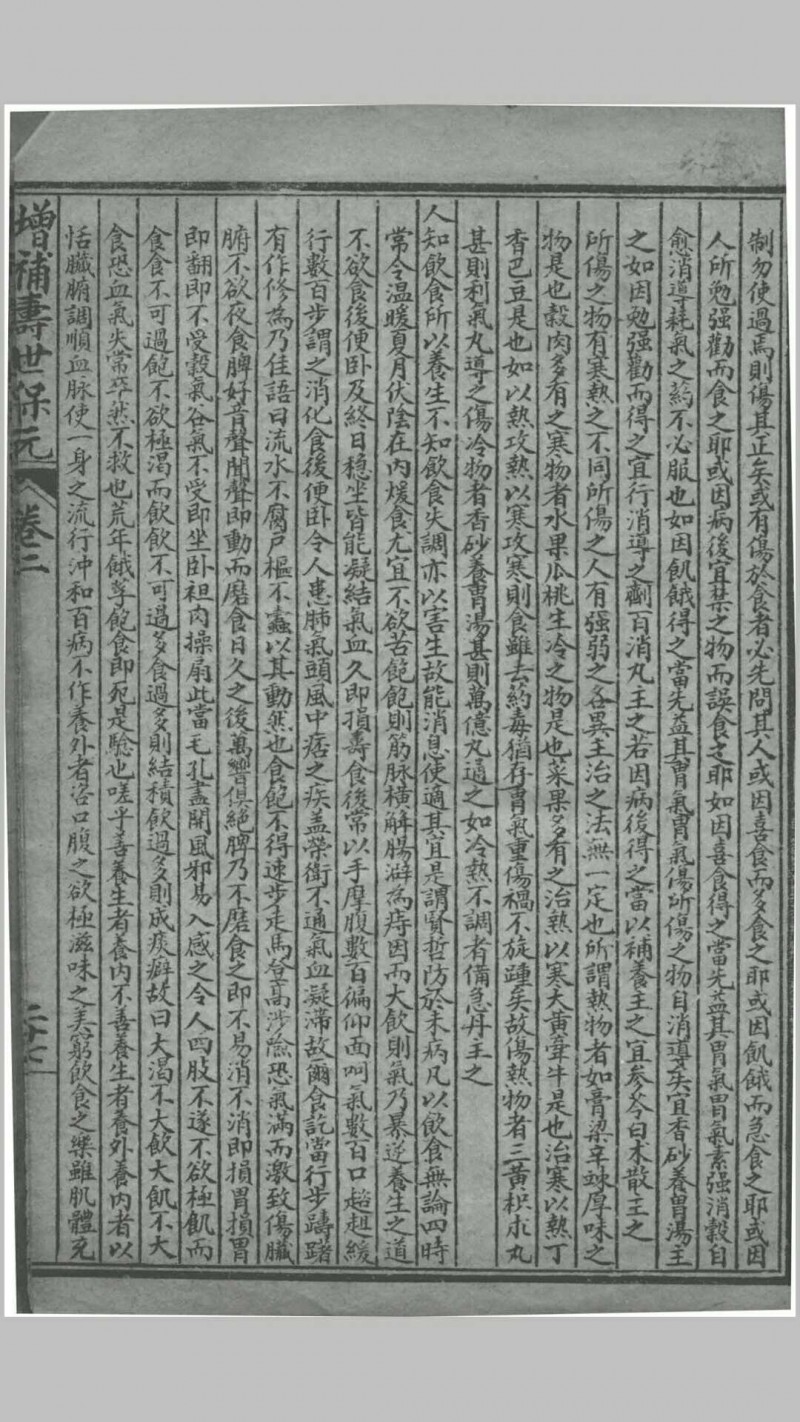 制勿使過焉則傷其正矣或有傷於食者必先問其人或因喜食而多食之耶或因飢餓而急食之耶或因
人所勉强勸而食之耶或因病後宜禁之物而誤食之耶如因喜食得之當先益其胃氣胃氣素强消穀自
愈消導耗氣之藥不必服也如因飢餓得之當先益其胃氣胃氣傷所傷之物自消導矣宜香砂養胃湯主
之如因勉强勸而得之宜行消導之劑百消丸主之若因病後得之當以補養主之宜參苓白术散主之
所傷之物有寒熱之不同所傷之人有强弱之各異主治之法無一定也所謂熱物者如膏粱辛辣厚味之
物是也穀肉多有之寒物者水果瓜桃生冷之物是也菜果多有之治熱以寒大黃牽牛是也治寒以熱丁
香巴豆是也如以熱攻熱以寒攻寒則食雖去葯毒猶存胃氣重傷禍不旋踵矣故傷熱物者三黃枳朮丸
甚則利氣丸導之傷冷物者香砂養胃湯甚則萬億丸通之如冷熱不調者備急丹主之
人知飲食所以養生不知飲食失調亦以害生故能消息使適其宜是謂賢哲防於未病凡以飲食無論四時
常令温暖夏月伏陰在内煖食尤宜不欲苦飽飽則筋脉橫解腸澼為痔因而大飲則氣乃暴逆養生之道
不欲食後便卧及終日穩坐皆能凝結氣血久即損壽食後常以手摩腹數百徧仰面呵氣數百口趦趄緩
行數百步謂之消化食後便卧令人患肺氣頭風中痞之疾盖榮衛不通氣血凝滯故爾食訖當行步躊躇
有作修為乃佳語曰流水不腐戶樞不蠹以其動然也食飽不得速步走馬登高涉險恐氣滿而激致傷臟
腑不欲夜食脾好音聲聞聲即動而磨食日久之後萬響俱絕脾乃不磨食之即不易消不消即損胃損胃
即翻即不受穀氣谷氣不受即坐卧袒肉操扇此當毛孔盡開風邪易入感之令人四肢不遂不欲極飢而
食食不可過飽不欲極渴而飲飲不可過多食過多則結積飲過多則成痰癖故曰大渴不大飲大飢不大
食恐血氣失常卒然不救也荒年餓莩飽食即死是驗也嗟乎善養生者養内不善養生者養外養内者以
恬臟腑調順血脉使一身之流行冲和百病不作養外者恣口腹之欲極滋味之美窮飲食之樂雖肌體充
增補壽世保元 卷三